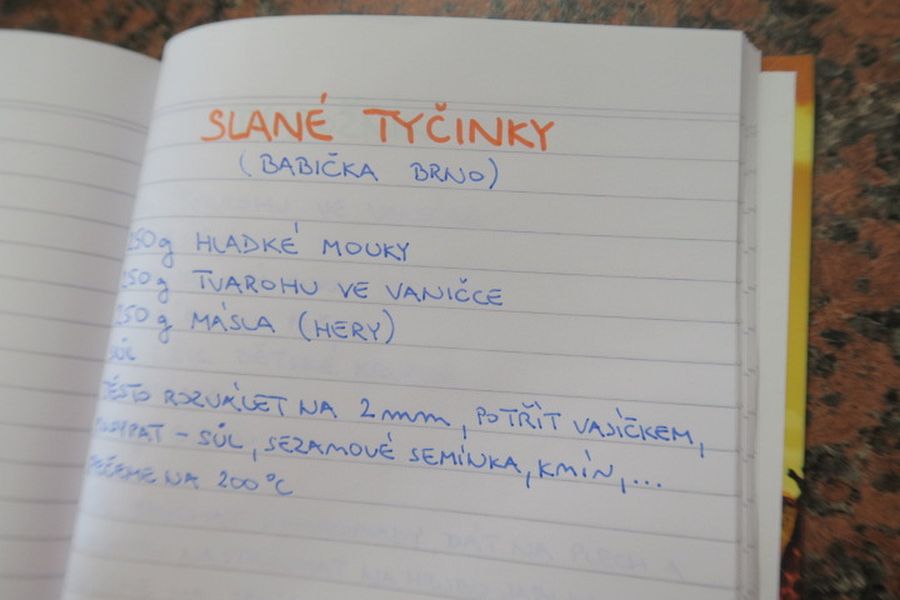 SLANÉ TYČINKY
(BABIČKA BRNO)
250g HLADKÉ MOUKY
250g TVAROHU VE VANIČCE
250g MÁSLA (HERY)
SŮL
TĚSTO ROZVÁLET NA 2mm, POTŘÍT VAJÍČKEM,
POSYPAT - SŮL, SEZAMOVÉ SEMÍNKA, KMÍN, ...
PEČEME NA 200°C